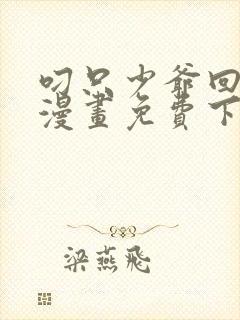 叼只少爺回
漫畫免費下
梁燕飛